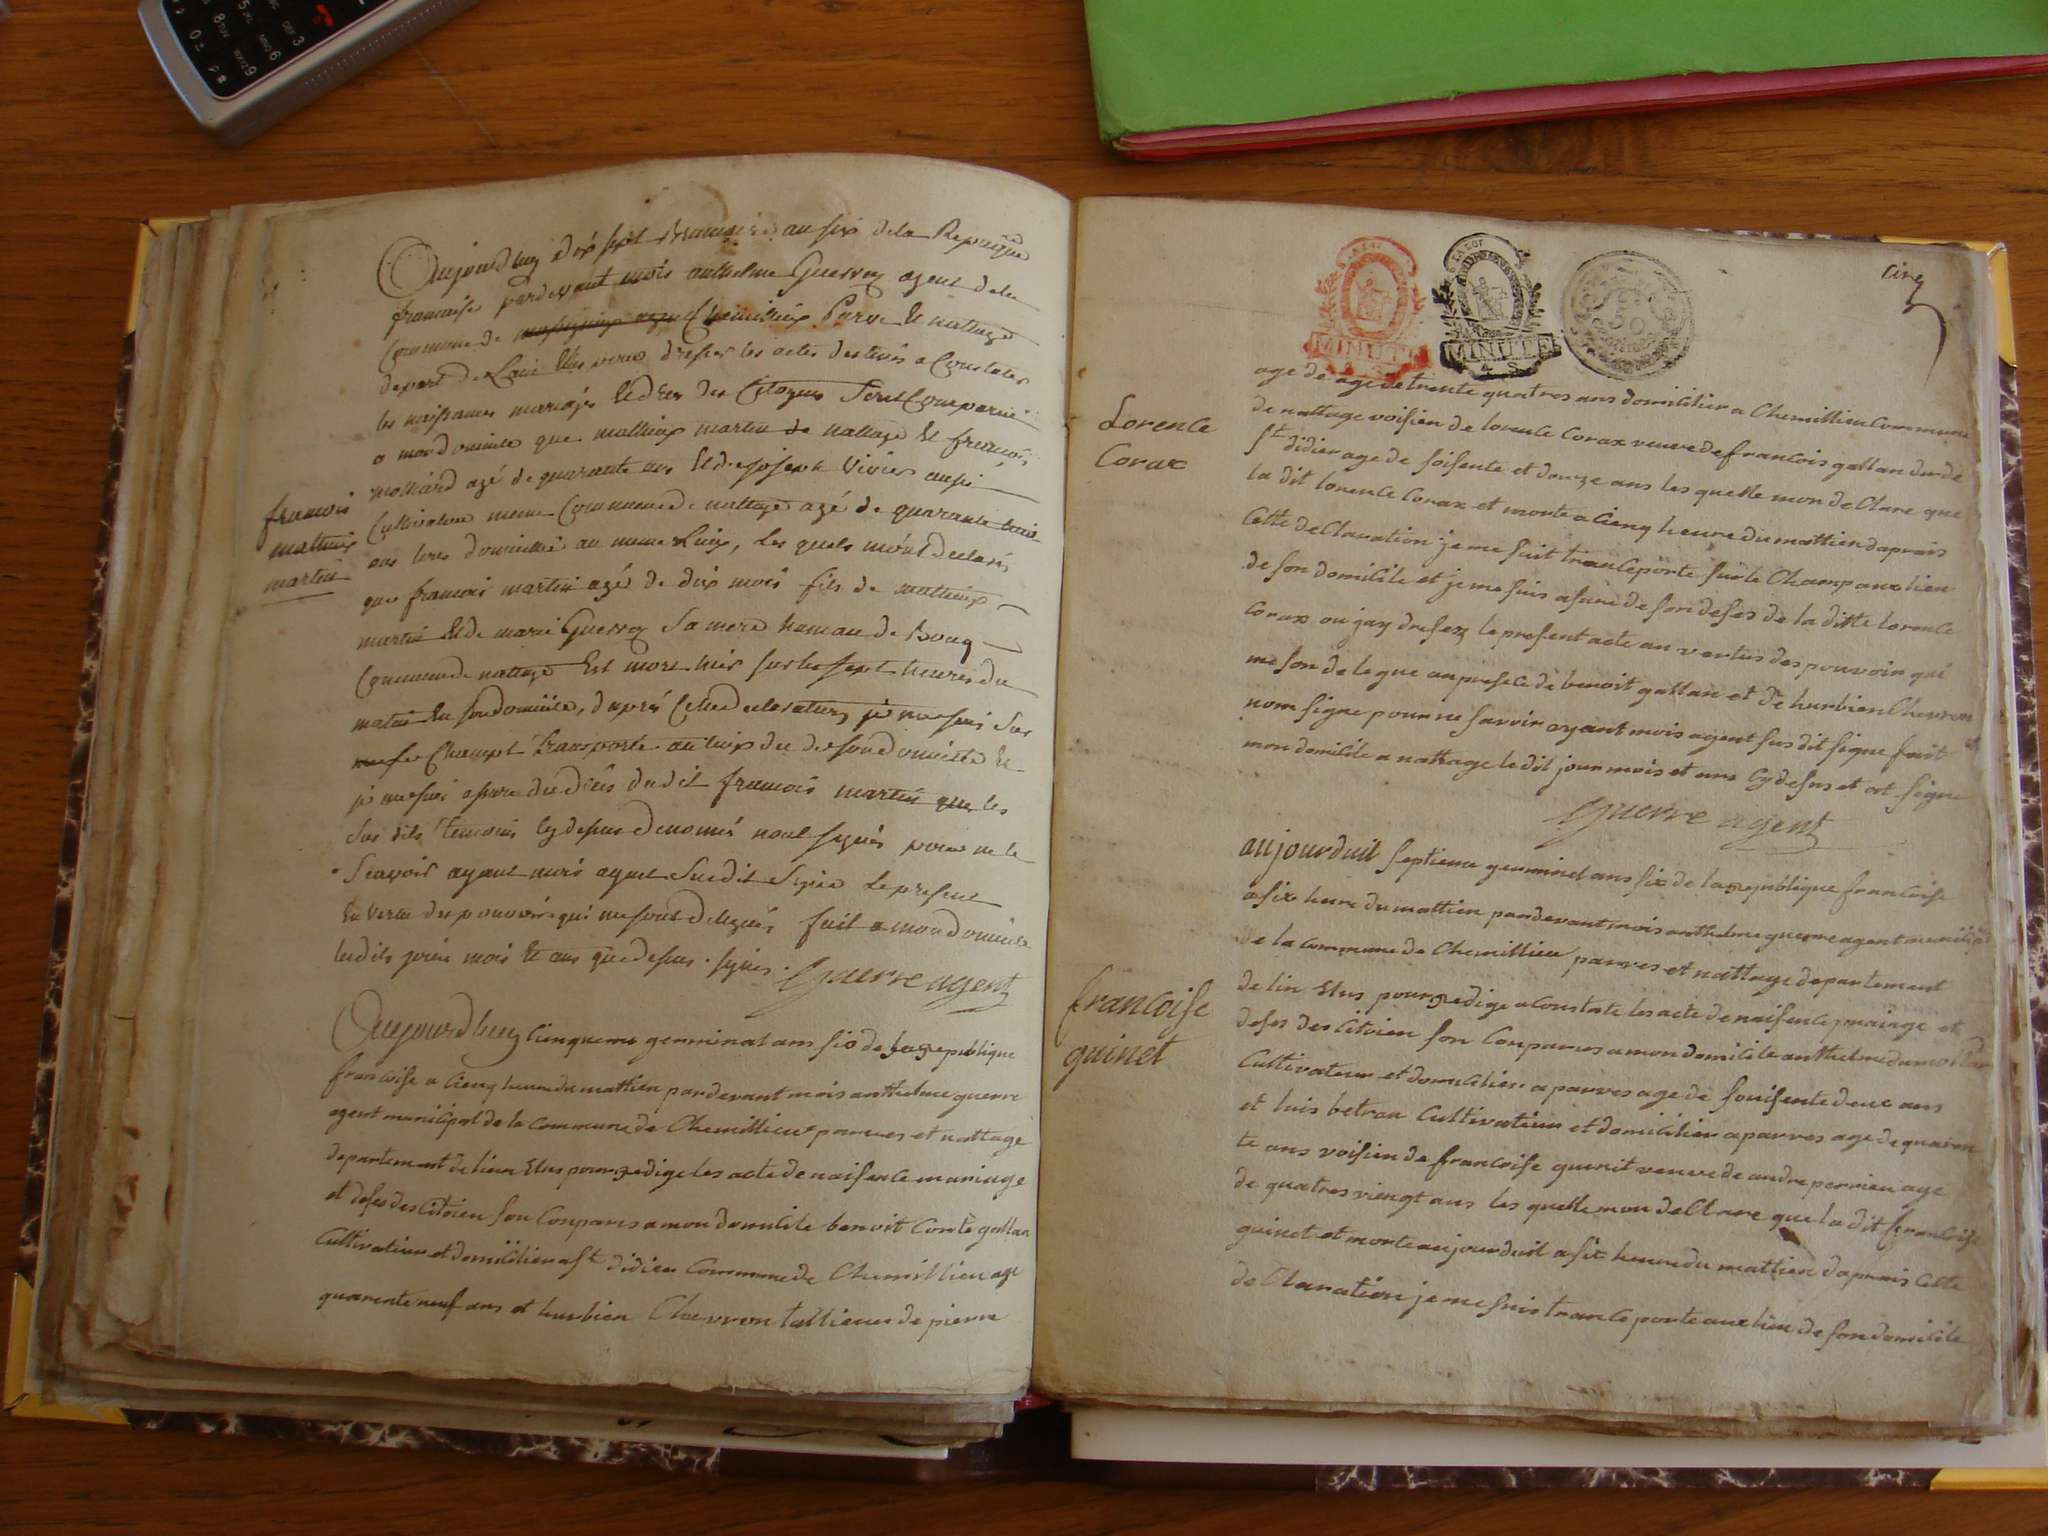 Aujourdhuy dix sept an six dela Republique
francaise pardevant mois anthelme Guerre agent dela
Commune de Chemillieu Parve Et nattage
depart de Lain Elus pour dresser les actes destinés a Constater
les naissances mariages Et déces des Citoyens Sont Comparu
a mon domicile que mathieu martin de nattage Et francois
molliard agé de quarante ans Et de joseph Vivier aussi
Cultivateur meme Commune de nattage agé de quarante trois
ans tous domicilié au meme Lieux, Les quels m'ont declarés
que francois martin agé de dix mois fils de mathieux
martin Et de marie Guerre Sa mere hameau de
Commune de nattage Est mort hier sur les sept heures du
matin En son domicile, d'aprés Cette declaration je me suis Sur
Champt Transporté au lieux de son domicile Et
je me suis assuré du déces dudit francois martin que les
Sus dits temoins Cy dessus denomés nont signés pour ne le
Scavoir ayant mois agent Susdit Signé Le present
En vertu des pouvoirs qui me sont delegués fait a mon domicile
Lesdits jours mois Et ans que dessus. signés. Guerre agent
francois
mathieux
martin
Aujourdhuy cienquieme germinal ans six de la republique
francoise a cienq heure du mattien pardevant mois anthelme guerre
agent municipal de la commune de Chemillieu parves et nattage
departement de lien Elus pour redige les acte de naisence mariage
et deses des Citoien son Conparus a mon domicile benoit Comte gallan
Cultivateur et domicilier a st didier Commune de Chemillieu age
quarente neuf ans et hurbien Chevron tallieur de pierre
cinq
MINUTE
MINUTE
50
age de age de trente quatres ans domicilier a Chemillieu Commune
de nattage voisien de lorence Corax veuve de francois gallan du de
st didier age de soisente et douze ans les quelle mon de Clare que
la dit lorence Corax et morte a cienq heure du mattien daprais
Cette de Claration je me suit tranceporte sur le Champ aux lien
de son domicile et je me suis asure de son deses de la ditte lorence
Corax ou jay dresez le present acte au vertus des pouvoir qui
me son delegue an presece de benoit gallan et de hurbien Chevron
nom signe pour ne savoir ayant mois agent sus dit signe fait
mon domicile a nattage le dit jour mois et ans Cy desus et ont signe
Guerre agent
Lorence
Corax
aujourduit septieme germinel ans six de la republique francoise
a six heure du mattien pardevant mois anthelme guerre agent municipal
de la commune de Chemillieu parves et nattage departement
de lin Elus pour redige a constate les acte de naisence maiage et
deses des Citoien son Conparus a mon domicile anthelme dumollar
Cultivateur et domicilier a parves age de soisente deux ans
et luis betran Cultivateur et domicilier a parves age de quaren
te ans voisien de francoise guinit veuve de andre perrien age
de quatres viengt ans les quelle mon de Clare que la dit francoise
guinet et morte aujourduit a six heure du mattien daprais Cette
de Claration je me suis tranceporte aux lien de son domicile
francoise
guinet